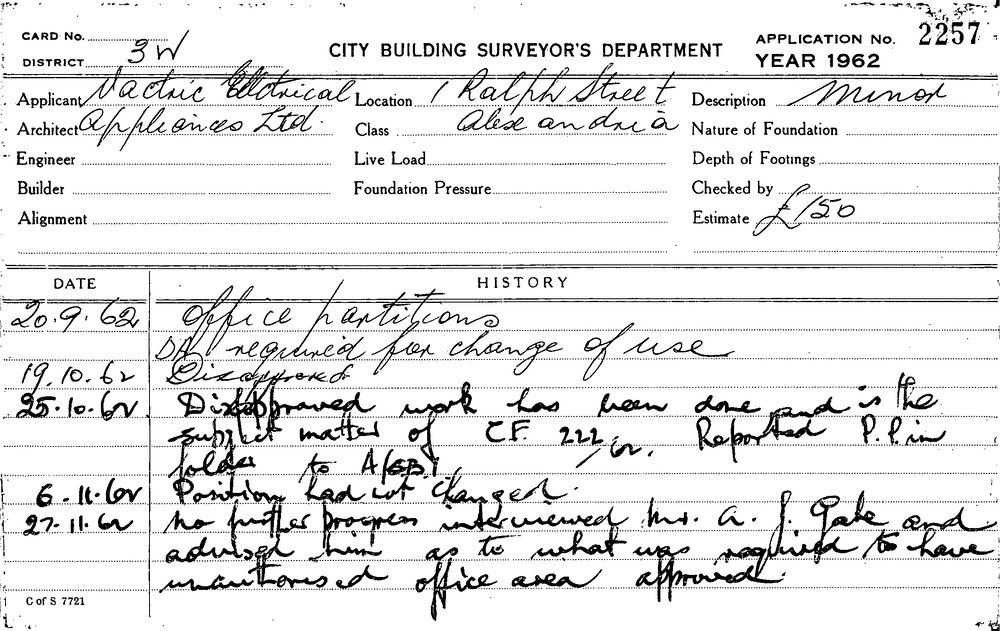 CARD No.
DISTRICT 3W
CITY BUILDING SURVEYOR'S DEPARTMENT
APPLICATION No. 2257
YEAR 1962
Applicant Vactric Electrical Location 1 Ralph Street Description Minor
Architect Appliances Ltd. Class Alexandria Nature of Foundation
Engineer Live Load Depth of Footings
Builder Foundation Pressure Checked by
Alignment Estimate £150
DATE HISTORY
20.9.62 Office partitions
DA required for change of use
19.10.62 Disapproved
25.10.62 Disapproved work has been done and is the
subject matter of CF. 222/62. Reported P.P. in
folder to A/S.B.I.
6.11.62 Position had not changed.
27.11.62 No further progress interviewed Mr. A. J. Gale and
advised him as to what was required to have
unauthorised office area approved.
C of S 7721